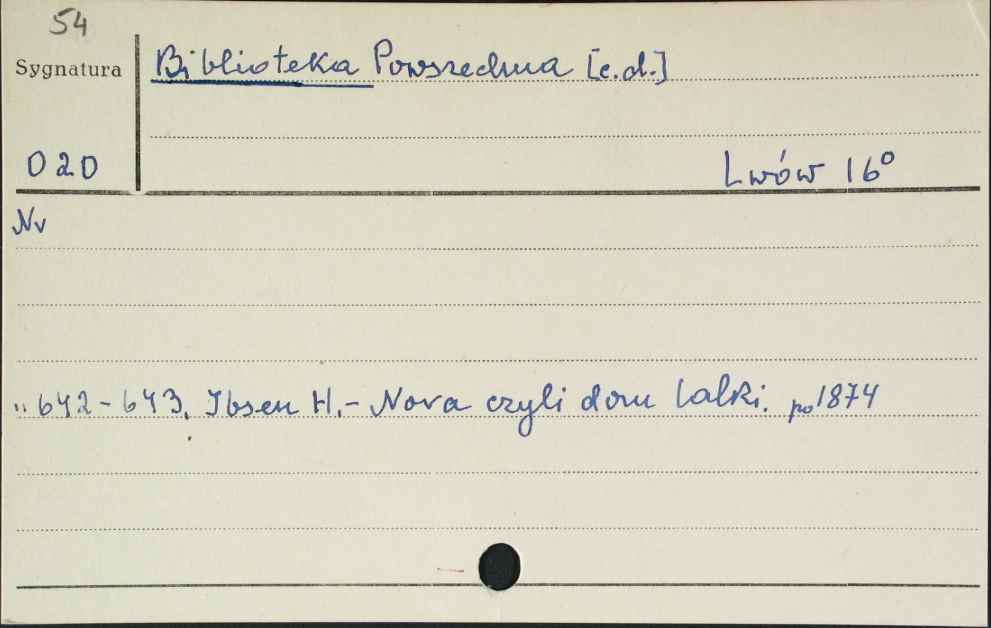 54
Sygnatura
Biblioteka Powszechna [c.d.]
020
Lwów 16°
Nv
„ 642-643. Ibsen H.- Nora czyli dom lalki. po 1874